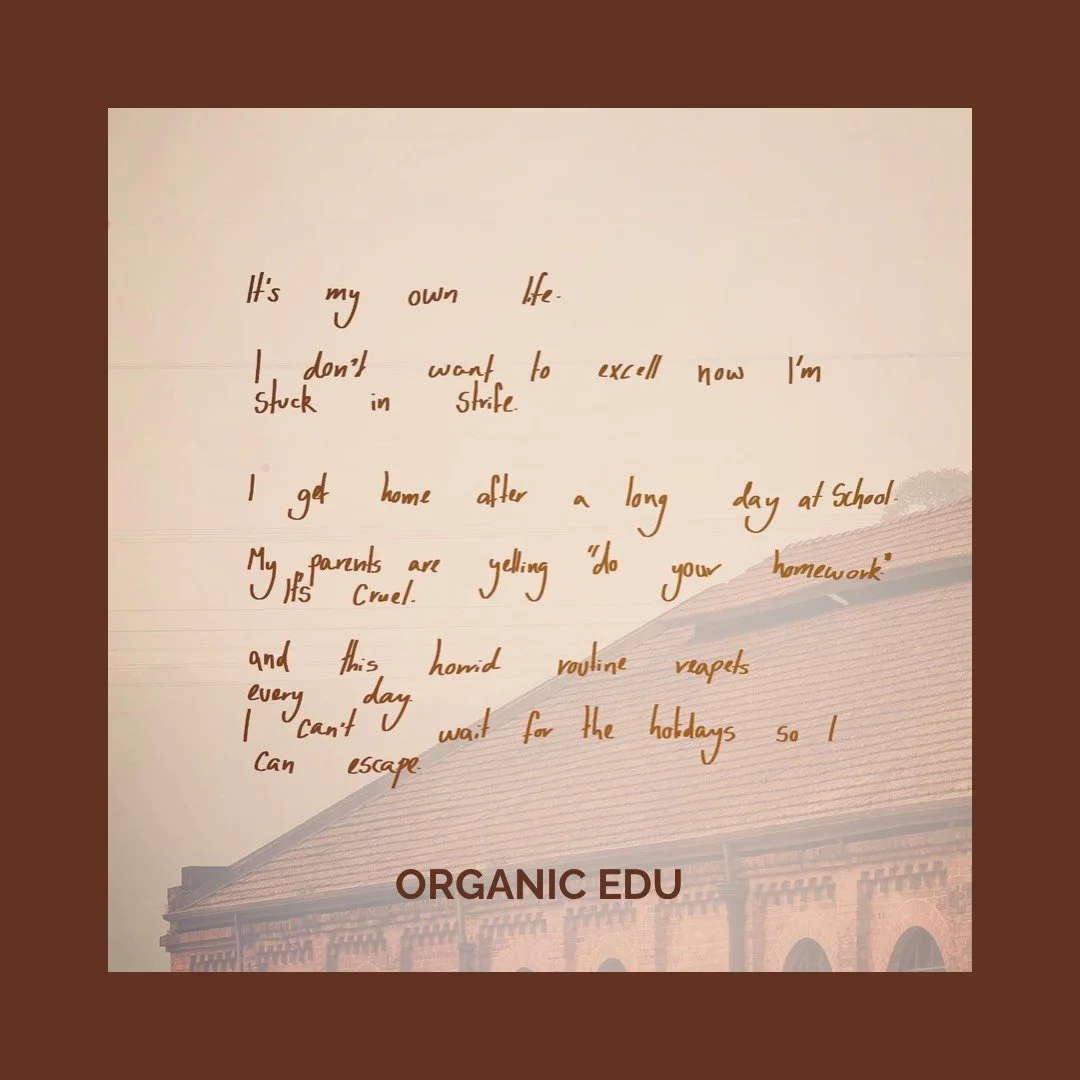 It's my own life.
I don't want to excell now I'm
stuck in strife.
I get home after a long day at School.
My parents are yelling "do your homework"
It's Cruel.
and this horrid routine reapets
every day
I can't wait for the holidays so I
can escape.
ORGANIC EDU